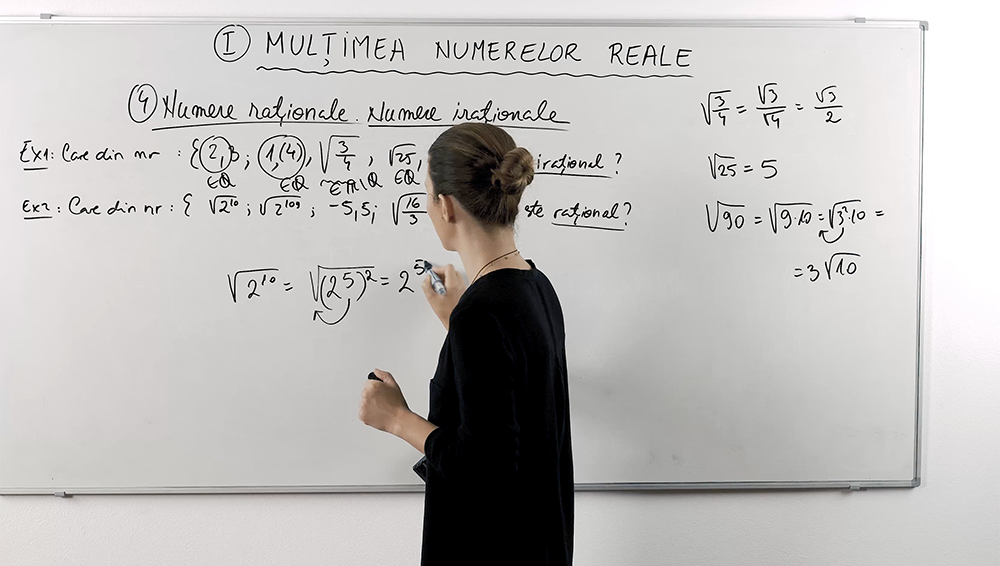 I MULȚIMEA NUMERELOR REALE
4 Numere raționale. Numere iraționale
Ex1: Care din nr : {2,3; 1,(4), √(3/4), √25, irațional?
∈Q ∈Q ∈R\Q ∈Q
Ex2: Care din nr: { √2^10; √2^109; -5,5; √(16/3) ste rațional?
√2^10 = √(2^5)^2 = 2^5
√(3/4) = √3/√4 = √3/2
√25 = 5
√90 = √9·10 = √3^2·10 =
= 3√10